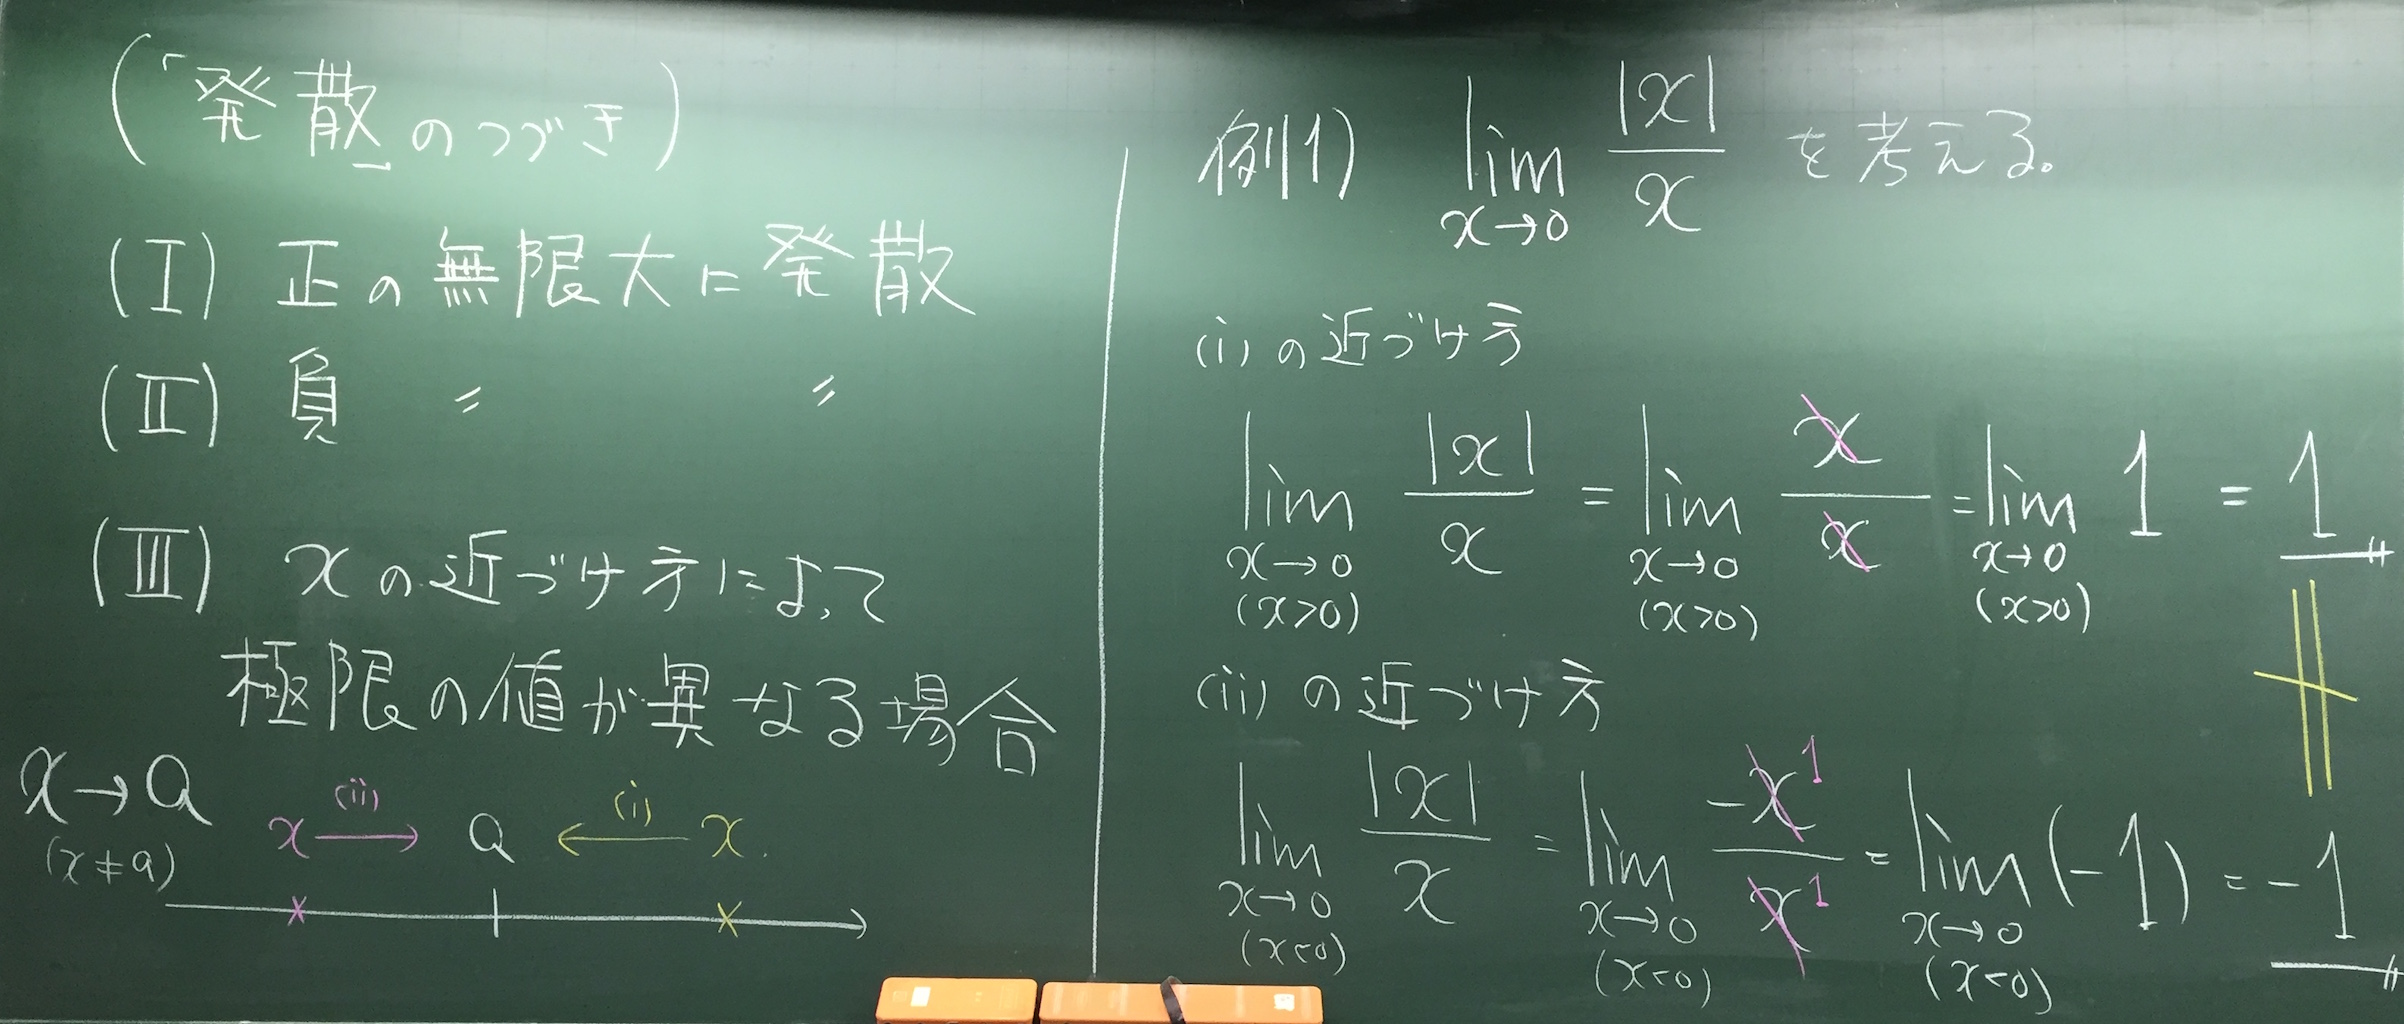 (「発散」のつづき)
(Ⅰ) 正の無限大に発散
(Ⅱ) 負 〃 〃
(Ⅲ) xの近づけ方によって
極限の値が異なる場合
x→a
(x≠a)
x (ii)→ a ←(i) x
例1) lim x→0 |x|/x を考える。
(i)の近づけ方
lim x→0 (x>0) |x|/x = lim x→0 (x>0) x/x = lim x→0 (x>0) 1 = 1
≠
(ii)の近づけ方
lim x→0 (x<0) |x|/x = lim x→0 (x<0) -x1/x1 = lim x→0 (x<0) (-1) = -1